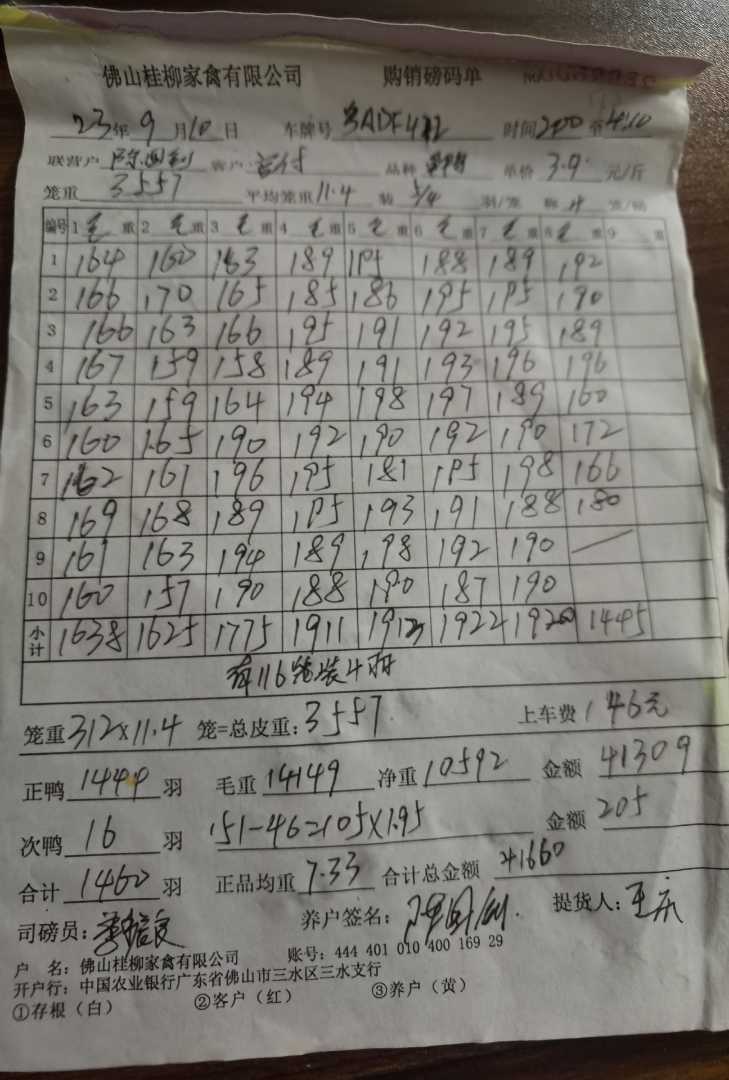 佛山桂柳家禽有限公司 购销磅码单
23年9月10日 车牌号 时间2:00至4:10
联营户 客户 品种 单价 3.9 元/斤
笼重 3557 平均笼重 11.4 装 5/4 羽/笼 称 4 笼/磅
编号 1 毛重 2 毛重 3 毛重 4 毛重 5 毛重 6 毛重 7 毛重 8 毛重 9 重
1 164 160 163 189 195 188 189 192
2 166 170 165 185 186 195 195 190
3 166 163 166 195 191 192 195 189
4 167 159 158 189 191 193 196 196
5 163 159 164 194 198 197 189 160
6 160 165 190 192 190 192 190 172
7 162 161 196 195 181 195 198 166
8 169 168 189 195 193 191 188 180
9 161 163 194 189 198 192 190 —
10 160 157 190 188 190 187 190
小计 1638 1625 1775 1911 1913 1922 1920 1445
有116笼装4羽
笼重312×11.4 笼=总皮重:3557 上车费 146元
正鸭 1444 羽 毛重 14149 净重 10592 金额 41309
次鸭 16 羽 151-46=105×1.95 金额 205
合计 1460 羽 正品均重 7.33 合计总金额 41660
司磅员: 养户签名: 提货人:
户 名:佛山桂柳家禽有限公司 账号:444 401 010 400 169 29
开户行:中国农业银行广东省佛山市三水区三水支行
①存根(白) ②客户(红) ③养户(黄)